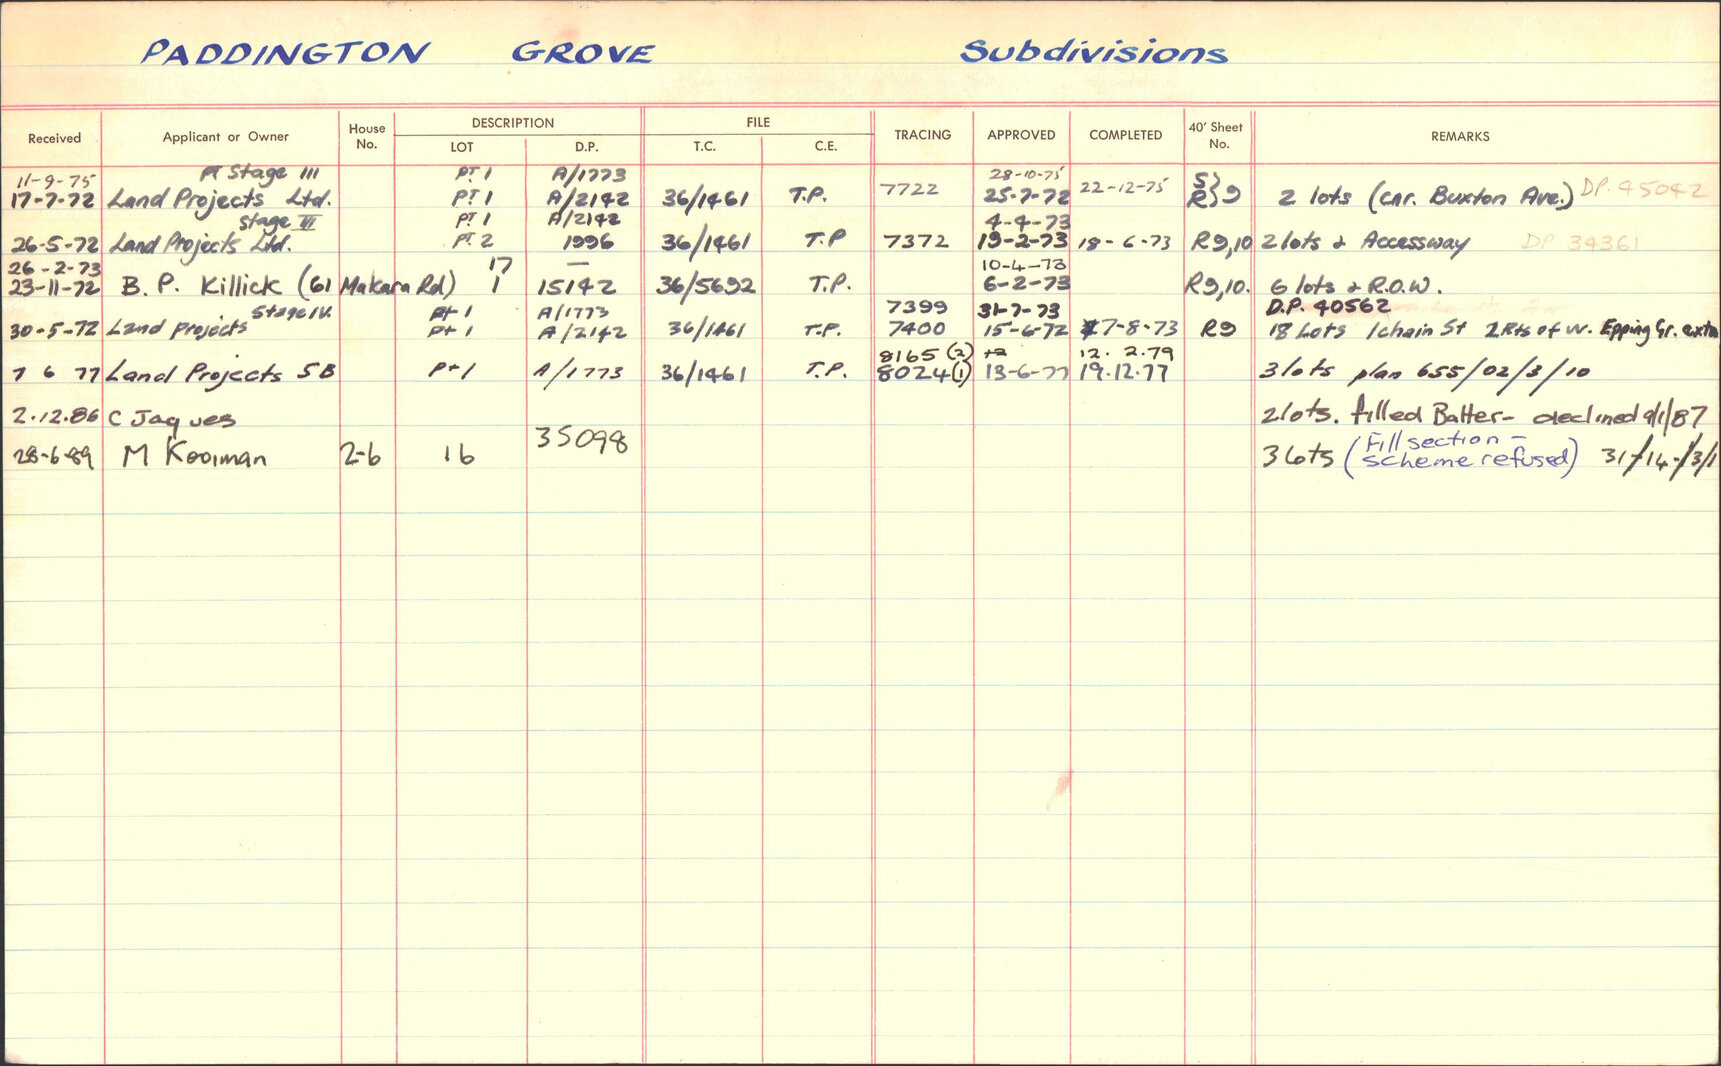 PADDINGTON GROVE Subdivisions
Received Applicant or Owner House No. DESCRIPTION LOT D.P. FILE T.C. C.E. TRACING APPROVED COMPLETED 40' Sheet No. REMARKS
11-9-75 PT Stage III PT 1 A/1773 28-10-75
17-7-72 Land Projects Ltd. PT 1 A/2142 36/1461 T.P. 7722 25-7-72 22-12-75 S R } 9 2 lots (cnr. Buxton Ave.) DP. 45042
Stage III PT 1 A/2142 4-4-73
26-5-72 Land Projects Ltd. PT 2 1996 36/1461 T.P 7372 19-2-73 18-6-73 R9,10 2 lots & Accessway DP 34361
26-2-73 17 — 10-4-73
23-11-72 B. P. Killick (61 Makara Rd) 1 15142 36/5692 T.P. 6-2-73 R9,10. 6 lots & R.O.W.
Stage IV. pt 1 A/1773 7399 31-7-73 D.P. 40562
30-5-72 Land Projects pt 1 A/2142 36/1461 T.P. 7400 15-6-72 7-8-73 R9 18 Lots 1chain St 2 Rts of W. Epping Gr. extn
8165 (2) 12. 2.79
7 6 77 Land Projects 5B Pt 1 A/1773 36/1461 T.P. 8024 (1) 13-6-77 19.12.77 3 lots plan 655/02/3/10
2.12.86 C Jaques 2 lots. filled Batter - declined 9/1/87
28-6-89 M Kooiman 2-6 16 35098 3 lots (Fill section - scheme refused) 31/14/3/1